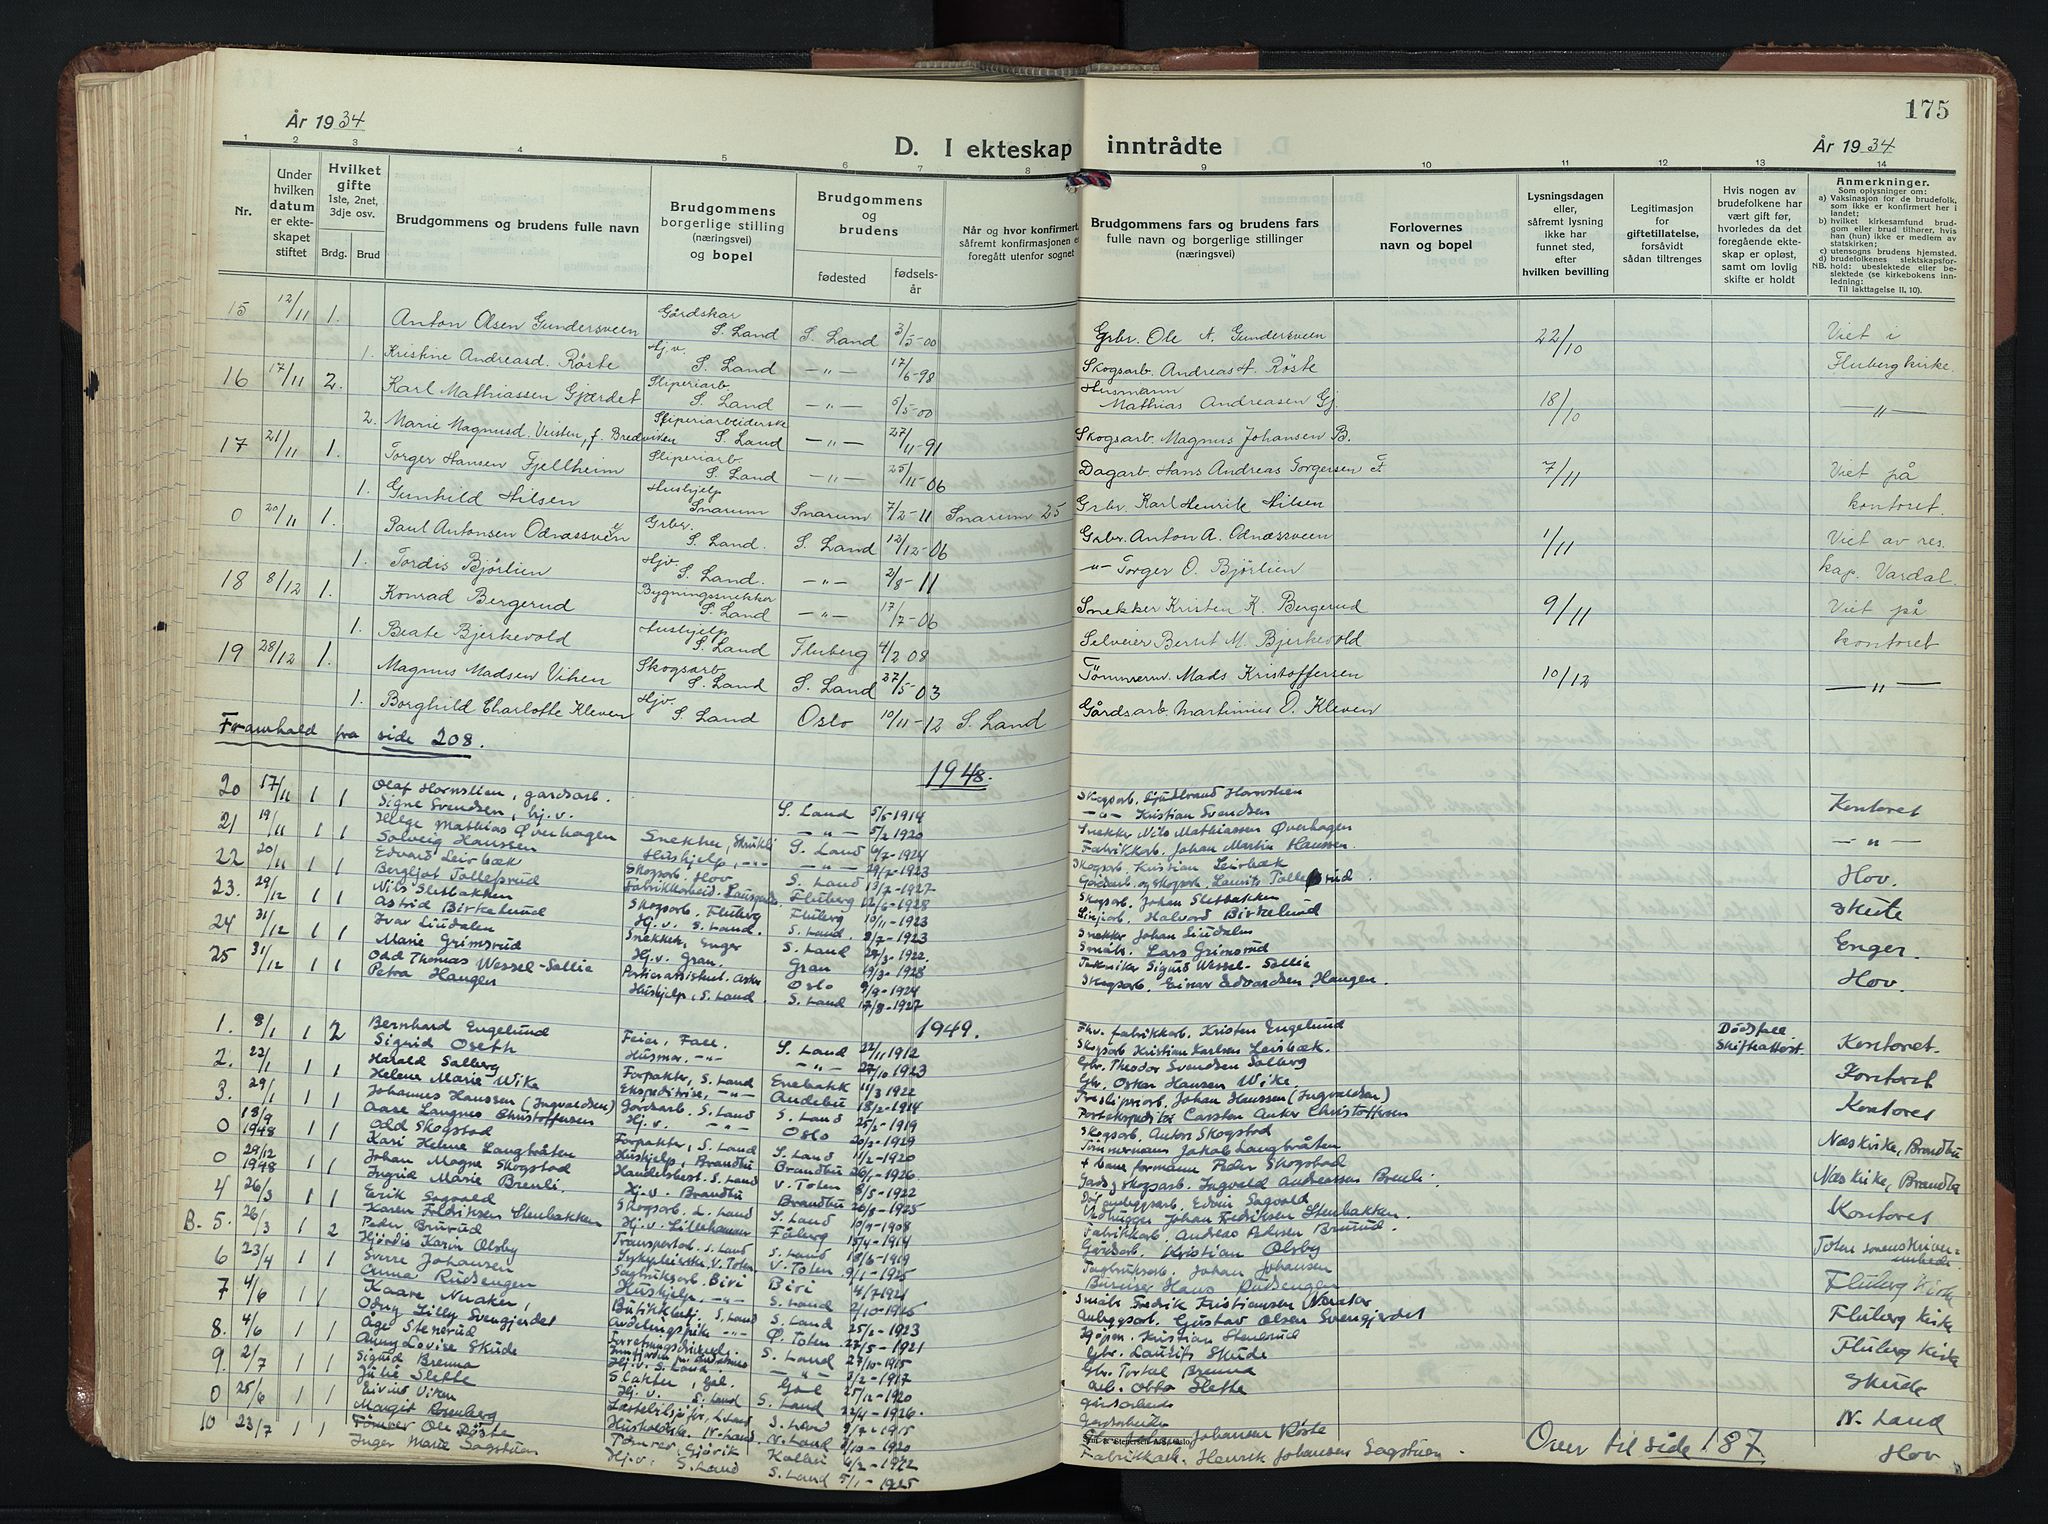 175
År 1934
D. I ekteskap inntrådte
År 1934
1 2 3 4 5 6 7 8 9 10 11 12 13 14
Nr.
Under hvilken datum er ekteskapet stiftet
Hvilket gifte 1ste, 2net, 3dje osv.
Brdg. Brud
Brudgommens og brudens fulle navn
Brudgommens borgerlige stilling (næringsvei) og bopel
Brudgommens og brudens
fødested
fødselsår
Når og hvor konfirmert, såfremt konfirmasjonen er foregått utenfor sognet
Brudgommens fars og brudens fars fulle navn og borgerlige stillinger (næringsvei)
Forlovernes navn og bopel
Lysningsdagen eller, såfremt lysning ikke har funnet sted, efter hvilken bevilling
Legitimasjon for giftetillatelse, forsåvidt sådan tiltrenges
Hvis nogen av brudefolkene har vært gift før, hvorledes da det foregående ekteskap er opløst, samt om lovlig skifte er holdt
Anmerkninger.
Som oplysninger om:
a) Vaksinasjon for de brudefolk, som ikke er konfirmert her i landet;
b) hvilket kirkesamfund brudgom eller brud tilhører, hvis han (hun) ikke er medlem av statskirken;
c) utensogns brudens hjemsted.
d) brudefolkenes slektskapsforhold: ubeslektede eller beslektede (se kirkebokens innledning:
NB. Til iakttagelse II, 10).
15 12/11 1. Anton Olsen Gundersveen Gårdskar S. Land S. Land 3/5-00 Grbr. Ole A. Gundersveen 22/10 Viet i
1. Kristine Andreasd. Røste Hj.v. S. Land -"- 17/6-98 Skogsarb. Andreas A. Røste Fluberg kirke.
16 17/11 2. Karl Mathiassen Gjærdet Sliperiarb. S. Land -"- 6/5-00 Husmann Mathias Andreasen Gj. 18/10 -"-
2. Marie Magnusd. Veisten, f. Bredviken Sliperiarbeiderske S. Land -"- 27/11-91 Skogsarb. Magnus Johansen B.
17 21/11 1. Torger Hansen Fjellheim Sliperiarb. S. Land -"- 25/11-06 Dagarb. Hans Andreas Torgersen F 7/11 Viet på
1. Gunhild Hilsen Hushjelp Snarum Snarum 7/2-11 Snarum 25 Grbr. Karl Henrik Hilsen kontoret.
0 20/11 1. Paul Antonsen Odnæssveen Grbr. S. Land. S. Land 12/12-06 Grbr. Anton A. Odnæssveen 1/11 Viet av res.
1. Tordis Bjørlien Hjv. S. Land. -"- 2/8-11 -"- Torger O. Bjørlien kap. Vardal.
18 8/12 1. Konrad Bergerud Bygningssnekker S. Land -"- 17/7-06 Snekker Kristen K. Bergerud 9/11 Viet på
1. Beate Bjerkevold Hushjelp S. Land Fluberg 4/2 08 Selveier Bernt M. Bjerkevold kontoret
19 28/12 1. Magnus Madsen Vihen Skogsarb S. Land S. Land 27/5-03 Tömmerm. Mads Kristoffersen 10/12 -"-
1. Borghild Charlotte Kleven Hjv. S. Land Oslo 10/11-12 S. Land Gårdsarb. Martinius O. Kleven
Framhald fra side 208.
1948.
20 17/11 1 1 Olaf Hornslien, gardsarb. S. Land 5/5 1914 Skogsarb. Gudbrand Hornslien Kontoret
Signe Svendsen, hj.v. -"- 5/2 1920 -"- Kristian Svendsen
21 19/11 1 1 Helge Mathias Øverhagen Snekker, S. Land 6/7-1924 Snekker Nils Mathiassen Øverhagen -"-
Solveig Hanssen Hushjelp, -"- 29/7-1923 Fabrikkarb. Johan Martin Hanssen.
22 20/11 1 1 Edvard Leirbæk Skogsarb. Hov S. Land 13/7-1927 Skogsarb. Kristian Leirbæk Hov.
Bergljot Tollefsrud Fabrikkarbeid. Fluberg 12/6-1928 Gårdsarb. og skogsarb. Laurits Tollefsrud.
23. 29/12 1 1 Nils Sletbakken Skogsarb. Fluberg Fluberg 10/11-1923 Skogsarb. Johan Sletbakken Skute
Astrid Birkelund Hj.v. S. Land. S. Land. 8/7-1923 Linjearb. Halvard Birkelund
24 31/12 1 1 Ivar Liudalen Snekker, Enger S. Land 1922. Snekker Johan Liudalen Enger.
Marie Grimsrud Hj.v. Gran. Gran 19/3-1928 Småbr. Lars Grimsrud
25 31/12 1 1 Odd Thomas Wessel-Sollie Portierassistent. Asker Oslo 9/9-1924 Tekniker Sigurd Wessel-Sollie Hov.
Petra Haugen Hushjelp, S. Land S. Land 17/8-1927 Skogsarb. Einar Edvardsen Haugen.
1949.
1. 8/1 1 2 Bernhard Engelund Feier, Fall. S. Land 22/11 1912 Fhv. fabrikkarb. Kristen Engelund Dödsfall Skifteattest. Kontoret.
Sigrid Oseth Husmor, -"- -"- 27/10 1923 Skogsarb Kristian Karlsen Leirbæk.
2. 22/1 1 1 Harald Solberg Forpakter, S. Land Enebakk 11/3 1922 Gbr. Theodor Svendsen Solberg Kontoret
Helene Marie Wike Ekspeditrise, -"- Andebu 18/2-1914 Gbr. Oskar Hansen Wike.
3. 29/1 1 1 Johannes Hanssen (Ingvaldsen) Gårdsarb. S. Land S. Land 25/2-1919 Johan Hanssen (Ingvaldsen) Kontoret
Aase Langnes Christoffersen Hj.v. -"- Oslo 20/2-1929 Carsten Anker Christoffersen
0 18/9 1948 1 1 Odd Skogstad Forpakter, S. Land S. Land 11/2-1920 Skogsarb. Anton Skogstad Nes Kirke, Brandbu
Kari Helene Langbråten Hushjelp, Brandbu Brandbu 26/1-1926 Tömmermann Jakob Langbråten
0 29/12 1948 1 1 Johan Magne Skogstad Handelsbest. S. Land V. Toten 8/5-1922 + baneformann Peder Skogstad Nes Kirke, Brandbu
Ingrid Marie Brenli. Hj.v. Brandbu Brandbu 26/3-1925 Gards. skogsarb. Ingvald Andreassen Brenli.
4 26/3 1 1 Erik Sagvold Skogsarb. S. Land S. Land 10/9-1908 Edvin Sagvold Kontoret
Karen Fredriksen Stenbakken Hj.v. Lillehammer Fåberg 15/4-1914 Vedhugger Johan Fredriksen Stenbakken.
B. 5. 26/3 1 2 Peder Brurud Transportarb. S. Land S. Land 18/6-1919 Fabrikkarb. Andreas Pedersen Brurud Toten sorenskriver-
Hjördis Karin Olsby V. Toten V. Toten 9/1-1925 Gårdarb. Kristian Olsby embede.
6 23/4 1 1 Sverre Johansen Sagbruksarb. Biri Biri 4/7 1921 Sagbruksarb. Johan Johansen Fluberg Kirke
Anna Rudsengen Hushjelp, -"- S. Land 2/10-1926 Hans Rudsengen
7 4/6 1 1 Kaare Næraker, Butikkbetj. S. Land S. Land 25/2-1923 Småbr. Fredrik Kristiansen Næraker Fluberg Kirke
Oddy Lilly Svengjerdet -"- Ø. Toten 27/5-1921 Anleggsarb. Gustav Olsen Svengjerdet
8. 4/6 1 1 Åge Stenerud S. Land 27/10-1915 Kristian Stenerud Fluberg Kirke
Anny Lovise Skude -"- 3/2-1917 Gbr. Laurits Skude
9. 2/7 1 1 Sigurd Brenna Slakter, Gol. Gol 25/12-1920 Gbr. Torkel Brenna Skude
Julie Slette Hj.v. S. Land S. Land 22/4-1926. arb. Otto Slette
0 25/6 1 1 Eivind Viken S. Land 9/7-1915 gårdarbeider N. Land
Margit Rosenberg N. Land N. Land 1920 Gardarbeider
10 23/7 1 1 Tömrer Ole Røste Tömrer, Gjøvik Kolbu 6/2-1922 Johansen Røste Hov
Inger Marie Sagstuen Hj.v. S. Land S. Land 5/1-1925 Fabrikkarb. Henrik Johansen Sagstuen.
Over til side 187